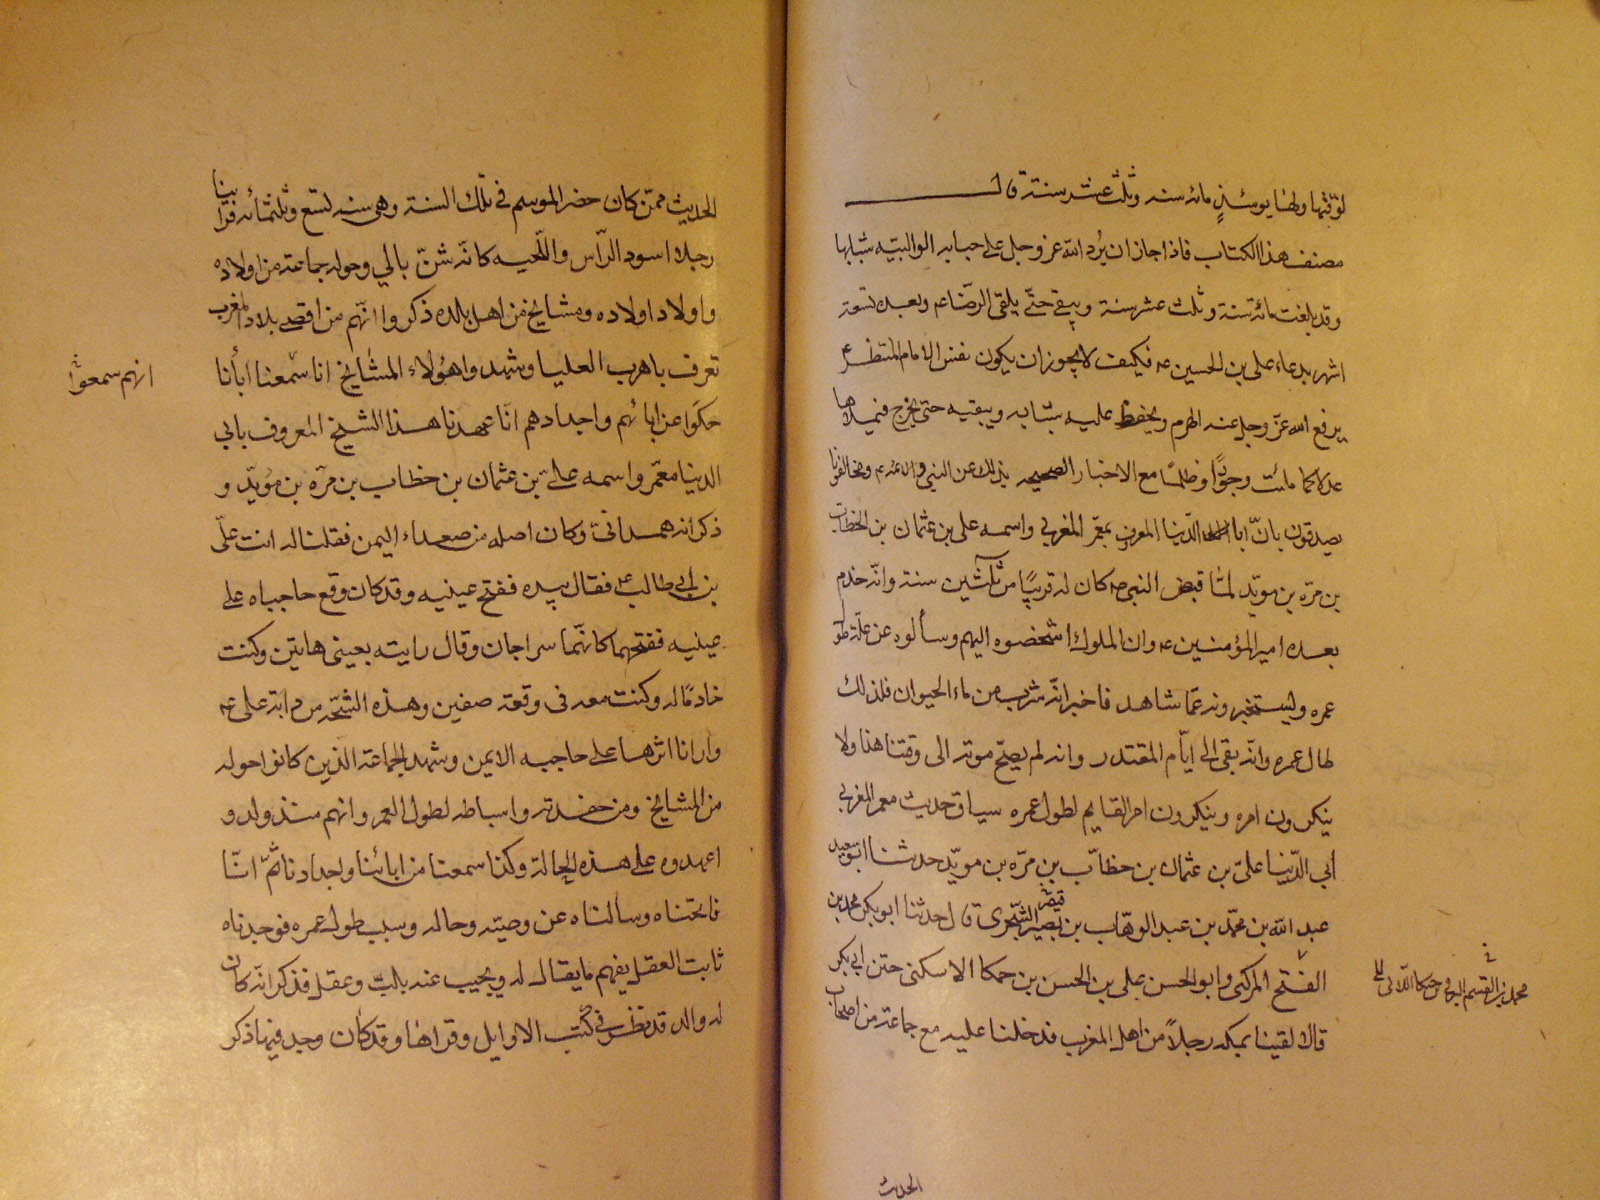 لوقتها ولها يومئذٍ مائه سنه وثلث عشر سنة قال
مصنف هذا الكتاب فاذا جاز ان يُرد الله عز وجل على حبابه الوالبيّه شبابها
وقد بلغت مائة سنة وثلث عشر سنة وتبقى حتّى يلقى الرضا عم وبعده تسعة
اشهر بدعاء على بن الحسين ع فكيف لا يجوز ان يكون نفس الامام المنتظر ع
يرفع الله عزّ وجل عنه الهرم ويحفظ عليه شبابه ويبقيه حتى يخرج فيملاها
عدلا كما ملئت وجورًا وظلمًا مع الاخبار الصحيحه بذلك عن النبى والائمه ع ومخالفونا
يصدقون بانّ ابا الدّنيا المعروف بمعمّر المغربي واسمه على بن عثمان بن الخطاب
بن مرّه بن مويّد لمّا قبض النبى ص كان له قريبًا من ثلثين سنة وانّه خدم
بعده امير المؤمنين ع وان الملوك اشخصوه اليهم وسألوه عن علة طول
عمره وليستخبرونه عمّا شاهد فاخبر انّه شرب من ماء الحيوان فلذلك
طال عمره وانّه بقى الى ايّام المقتدر وانه لم يصحّ موته الى وقتنا هذا ولا
ينكرون امره وينكرون امر القايم لطول عمره سياق حديث معمر المغربي
ابي الدّنيا علىّ بن عثمان بن خطّاب بن مرّه بن مويّد حدثنا ابو سعيد
عبد الله بن محمّد بن عبد الوهّاب بن نصير الشّجرى قال حدثنا ابو بكر محمد بن
الفتح المركنى وابو الحسن على بن الحسن بن حمكا الاسكنى ختن ابي بكر
قالا لقينا بمكه رجلاً من اهل المغرب فدخلنا عليه مع جماعة من اصحاب
الحديث
الحديث ممّن كان حضر الموسم في تلك السنة وهى سنه تسع وثلثمائه فراينا
رجلا اسود الرّاس واللّحيه كانّه شنّ بالي وحوله جماعة من اولاده
واولاد اولاده ومشايخ من اهل بلده ذكروا انّهم من اقصى بلاد المغرب
تعرف باهرب العليا وشهدوا هؤلاء المشايخ انا سمعنا اٰبأنا
انهم سمعوا
حكَوا عن ابائهم واجدادهم انّا عهدنا هذا الشيخ المعروف بابي
الدنيا معمّر واسمه علىّ بن عثمان بن خطاب بن مرّه بن مؤيّد و
ذكر انه همدانىّ وكان اصله من صعداء اليمن فقلنا له انت علّى
بن ابي طالب ع فقال بيده ففتح عينيه وقد كان وقع حاجباه على
عينيه ففتحهما كانّهما سراجان وقال رايته بعينى هاتين وكنت
خادمًا له وكنت معه فى وقعة صفين وهذه الشجّه من دابة على ع
وارانا اثرها على حاجبه الايمن وشهد الجماعة الذين كانوا حوله
من المشايخ ومن حفدته واسباطه لطول العمر وانهم منذ ولدو
اعهدوه على هذه الحالة وكذا سمعنا من ابائنا واجدادنا ثمّ انّا
فاتحناه وسالناه عن وصيته وحاله وسبب طول عمره فوجدناه
ثابت العقل يفهم ما يقال له ويجيب عنه بلبّ وعقل فذكر انّه كان
له والد قد نظر فى كُتب الاوايل وقراها وقد كان وجد فيها ذكر